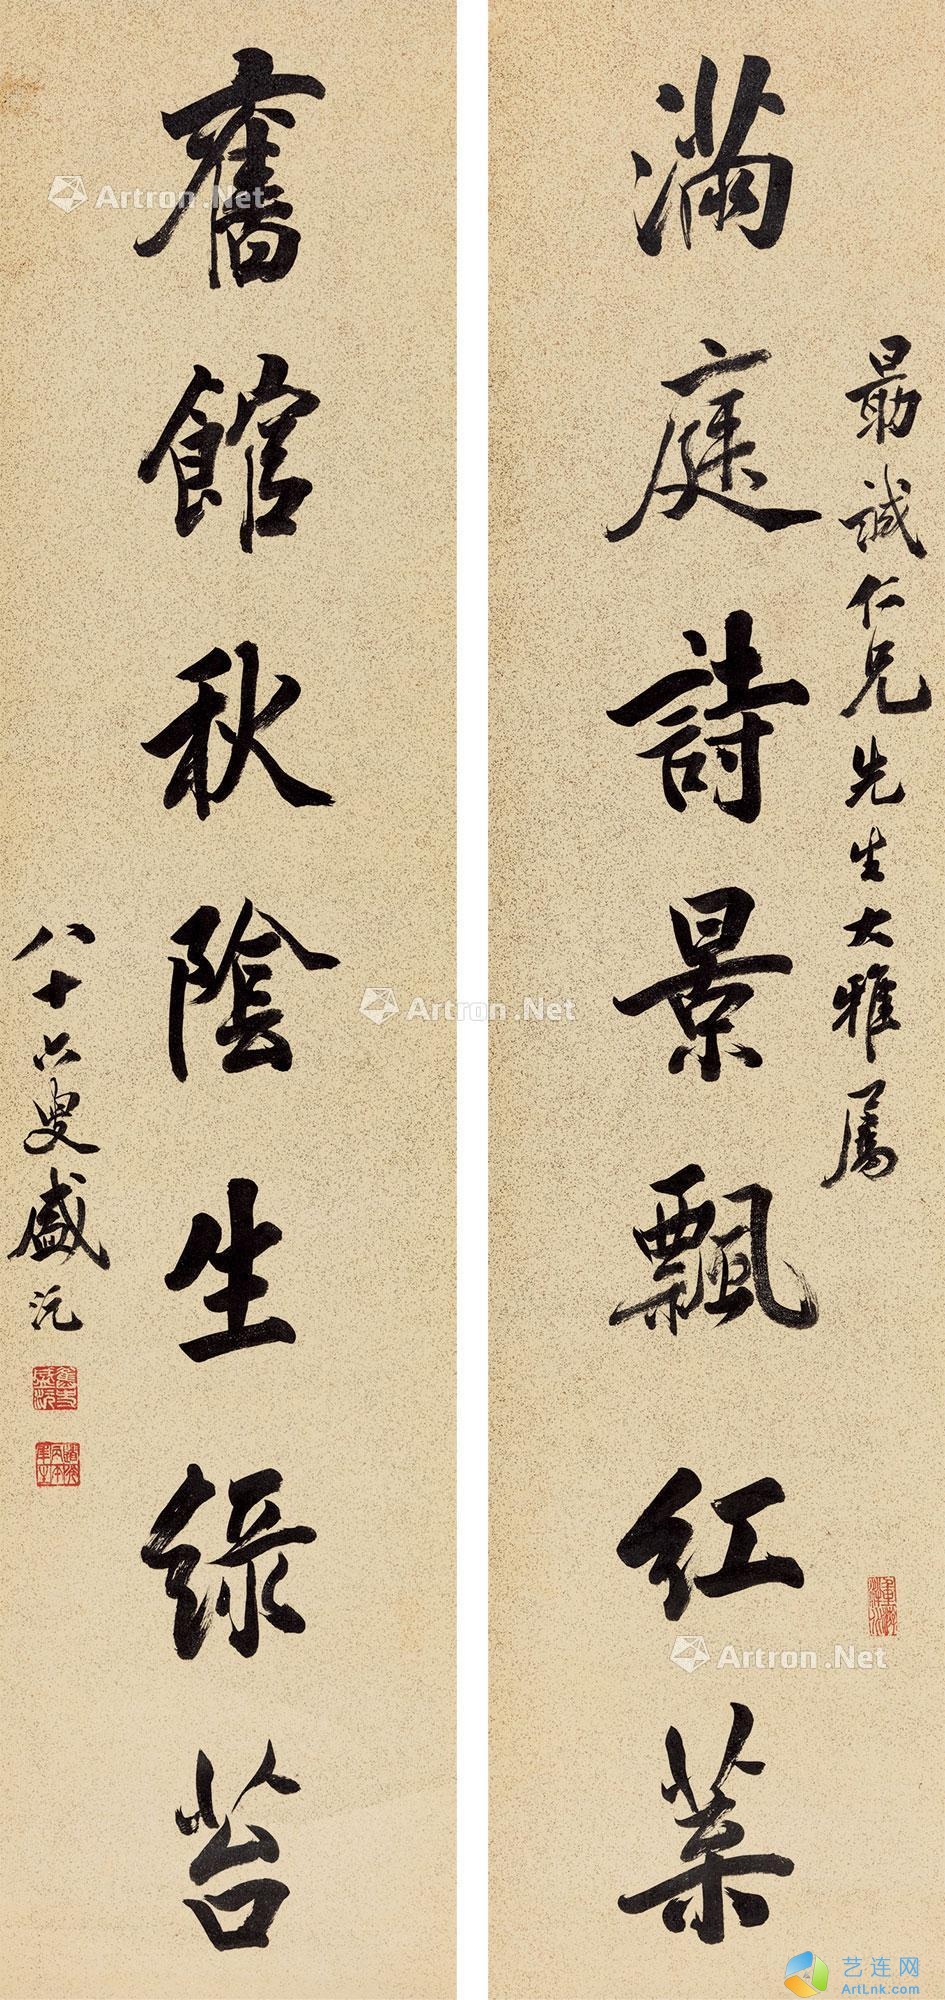 勗誠仁兄先生大雅属
滿庭詩景飄紅葉
舊館秋陰生綠苔
八十六叟盛沅
Artron.Net
Artron.Net
Artron.Net
艺连网
ArtLnk.com